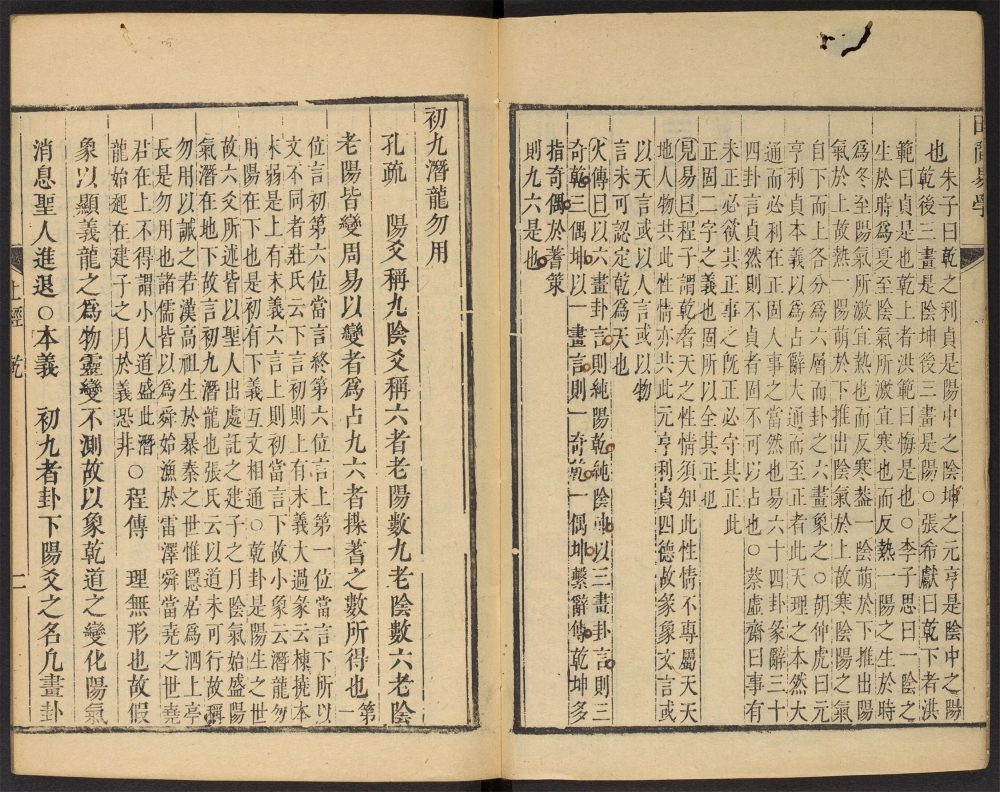 也朱子曰乾之利貞是陽中之陰坤之元亨是陰中之陽
乾後三畫是陰坤後三畫是陽○張希獻曰乾下者洪
範曰貞是也乾上者洪範曰悔是也○李子思曰一陰之
生於時爲夏至陰氣所激宜寒也而反熱一陽之生於時
爲冬至陽氣所激宜熱也而反寒葢一陰萌於下推出陽
氣於上故熱一陽萌於下推出陰氣於上故寒陰陽之氣
自下而上各分爲六層而卦之六畫象之○胡仲虎曰元
亨利貞本義以爲占辭大通而至正者此天理之本然大
通而必利在正固人事之當然也易六十四卦彖辭三十
四卦言貞然則不貞者固不可以占也○蔡虛齋曰事有
未正必欲其正事之旣正必守其正此
正固二字之義也固所以全其正也
見易曰程子謂乾者天之性情須知此性情不專屬天天
地人物共此性情亦共此元亨利貞四德故彖象文言或
以天言或以人言或以物
言未可認定乾爲天也
火傳曰以六畫卦言則純陽乾純陰坤以三畫卦言則三
奇乾三偶坤以一畫言則一奇乾一偶坤繫辭傳乾坤多
指奇偶於蓍策
則九六是也
初九潛龍勿用
孔疏 陽爻稱九陰爻稱六者老陽數九老陰數六老陰
老陽皆變周易以變者爲占九六者揲蓍之數所得也第一
位言初第六位當言終第六位言上第一位當言下所以
文不同者莊氏云下言初則上有末義大過彖云棟撓本
末弱是上有末義六言上則初當言下故小象云潛龍勿
用陽在下也是初有下義互文相通○乾卦是陽生之世
故六爻所述皆以聖人出處託之建子之月陰氣始盛陽
氣潛在地下故言初九潛龍也張氏云以道未可行故稱
勿用以誡之若漢高祖生於暴秦之世惟隱居爲泗上亭
長是勿用也諸儒皆以爲舜始漁於雷澤舜當堯之世堯
君在上不得謂小人道盛此潛
龍始起在建子之月於義恐非○程傳 理無形也故假
象以顯義龍之爲物靈變不測故以象乾道之變化陽氣
消息聖人進退○本義 初九者卦下陽爻之名凡畫卦
上經 乾
二